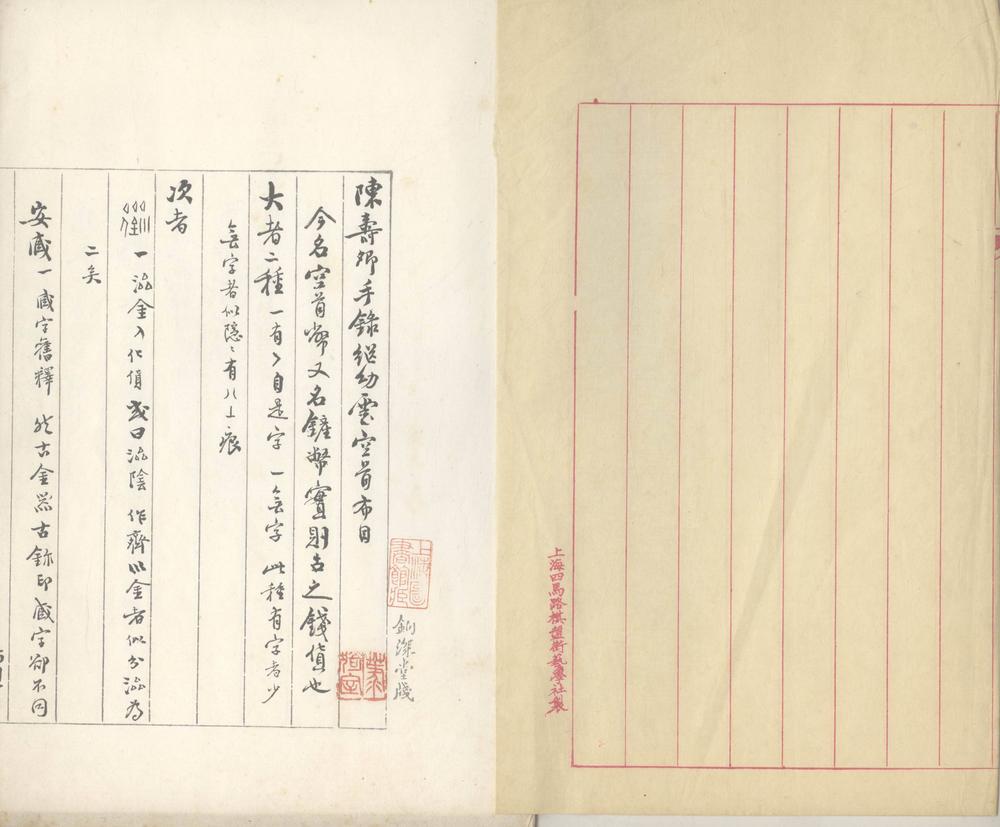 上海四馬路棋盤街藝學社製
陳壽卿手錄繼幼雲空首布目
今名空首幣又名鏟幣實則古之錢貨也
大者二種一有乀自是字 一無字 此種有字者少
無字者似隱〻有八丄痕
次者
一 滋金入化愼或曰滋陰 作齊以金者似分滋為
二矣
安臧一 臧字舊釋 然古金器古鉨印臧字卻不同
釗深堂牋